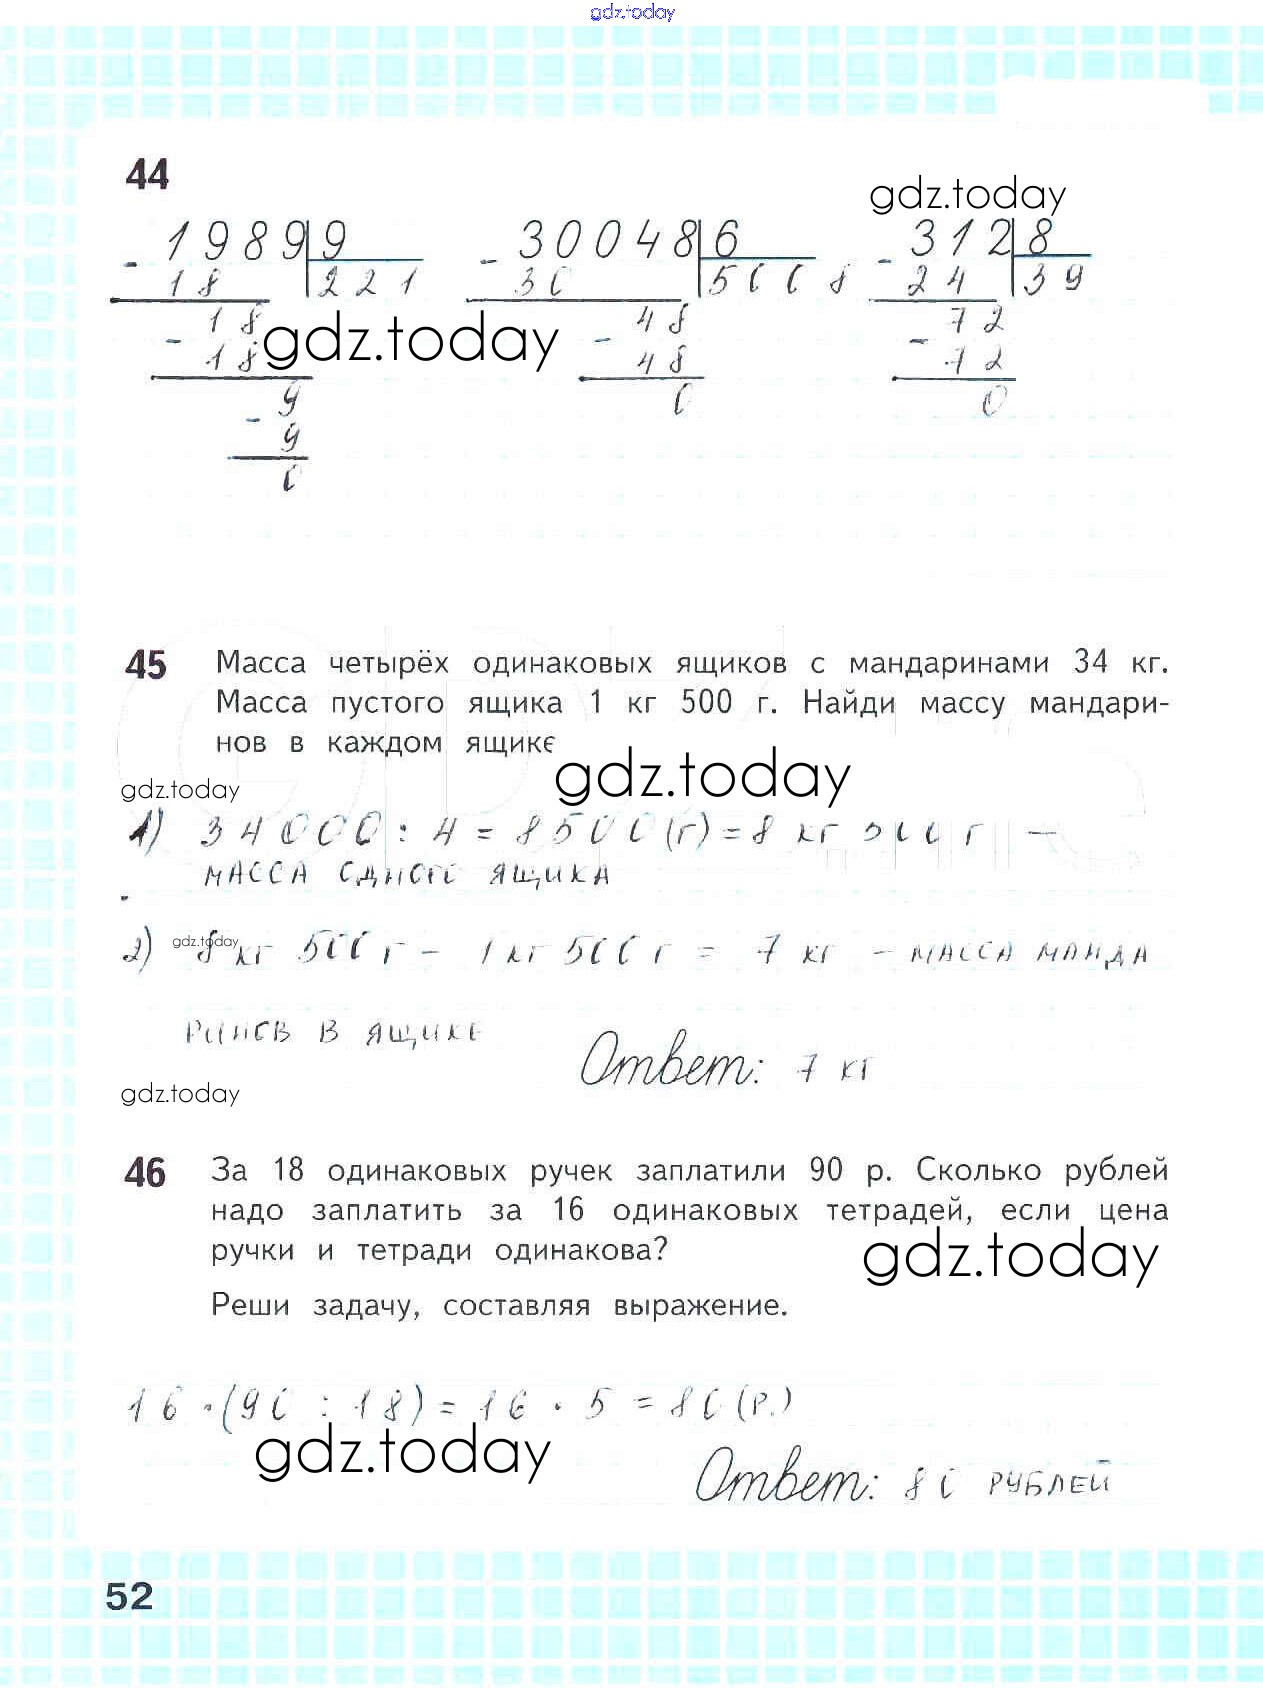 gdz.today
44
gdz.today
1989 9 30048 6 312 8
18 221 30 5008 24 39
18 48 72
18 48 72
gdz.today
9 0 0
9
0
45 Масса четырёх одинаковых ящиков с мандаринами 34 кг.
Масса пустого ящика 1 кг 500 г. Найди массу мандари-
нов в каждом ящике
gdz.today
gdz.today
1) 34000 : 4 = 8500 (г) = 8 кг 500 г –
масса одного ящика
2) 8 кг 500 г – 1 кг 500 г = 7 кг – масса манда
gdz.today
ринов в ящике
Ответ: 7 кг
gdz.today
46 За 18 одинаковых ручек заплатили 90 р. Сколько рублей
надо заплатить за 16 одинаковых тетрадей, если цена
ручки и тетради одинакова?
gdz.today
Реши задачу, составляя выражение.
16 · (90 : 18) = 16 · 5 = 80 (р.)
gdz.today
Ответ: 80 рублей
52